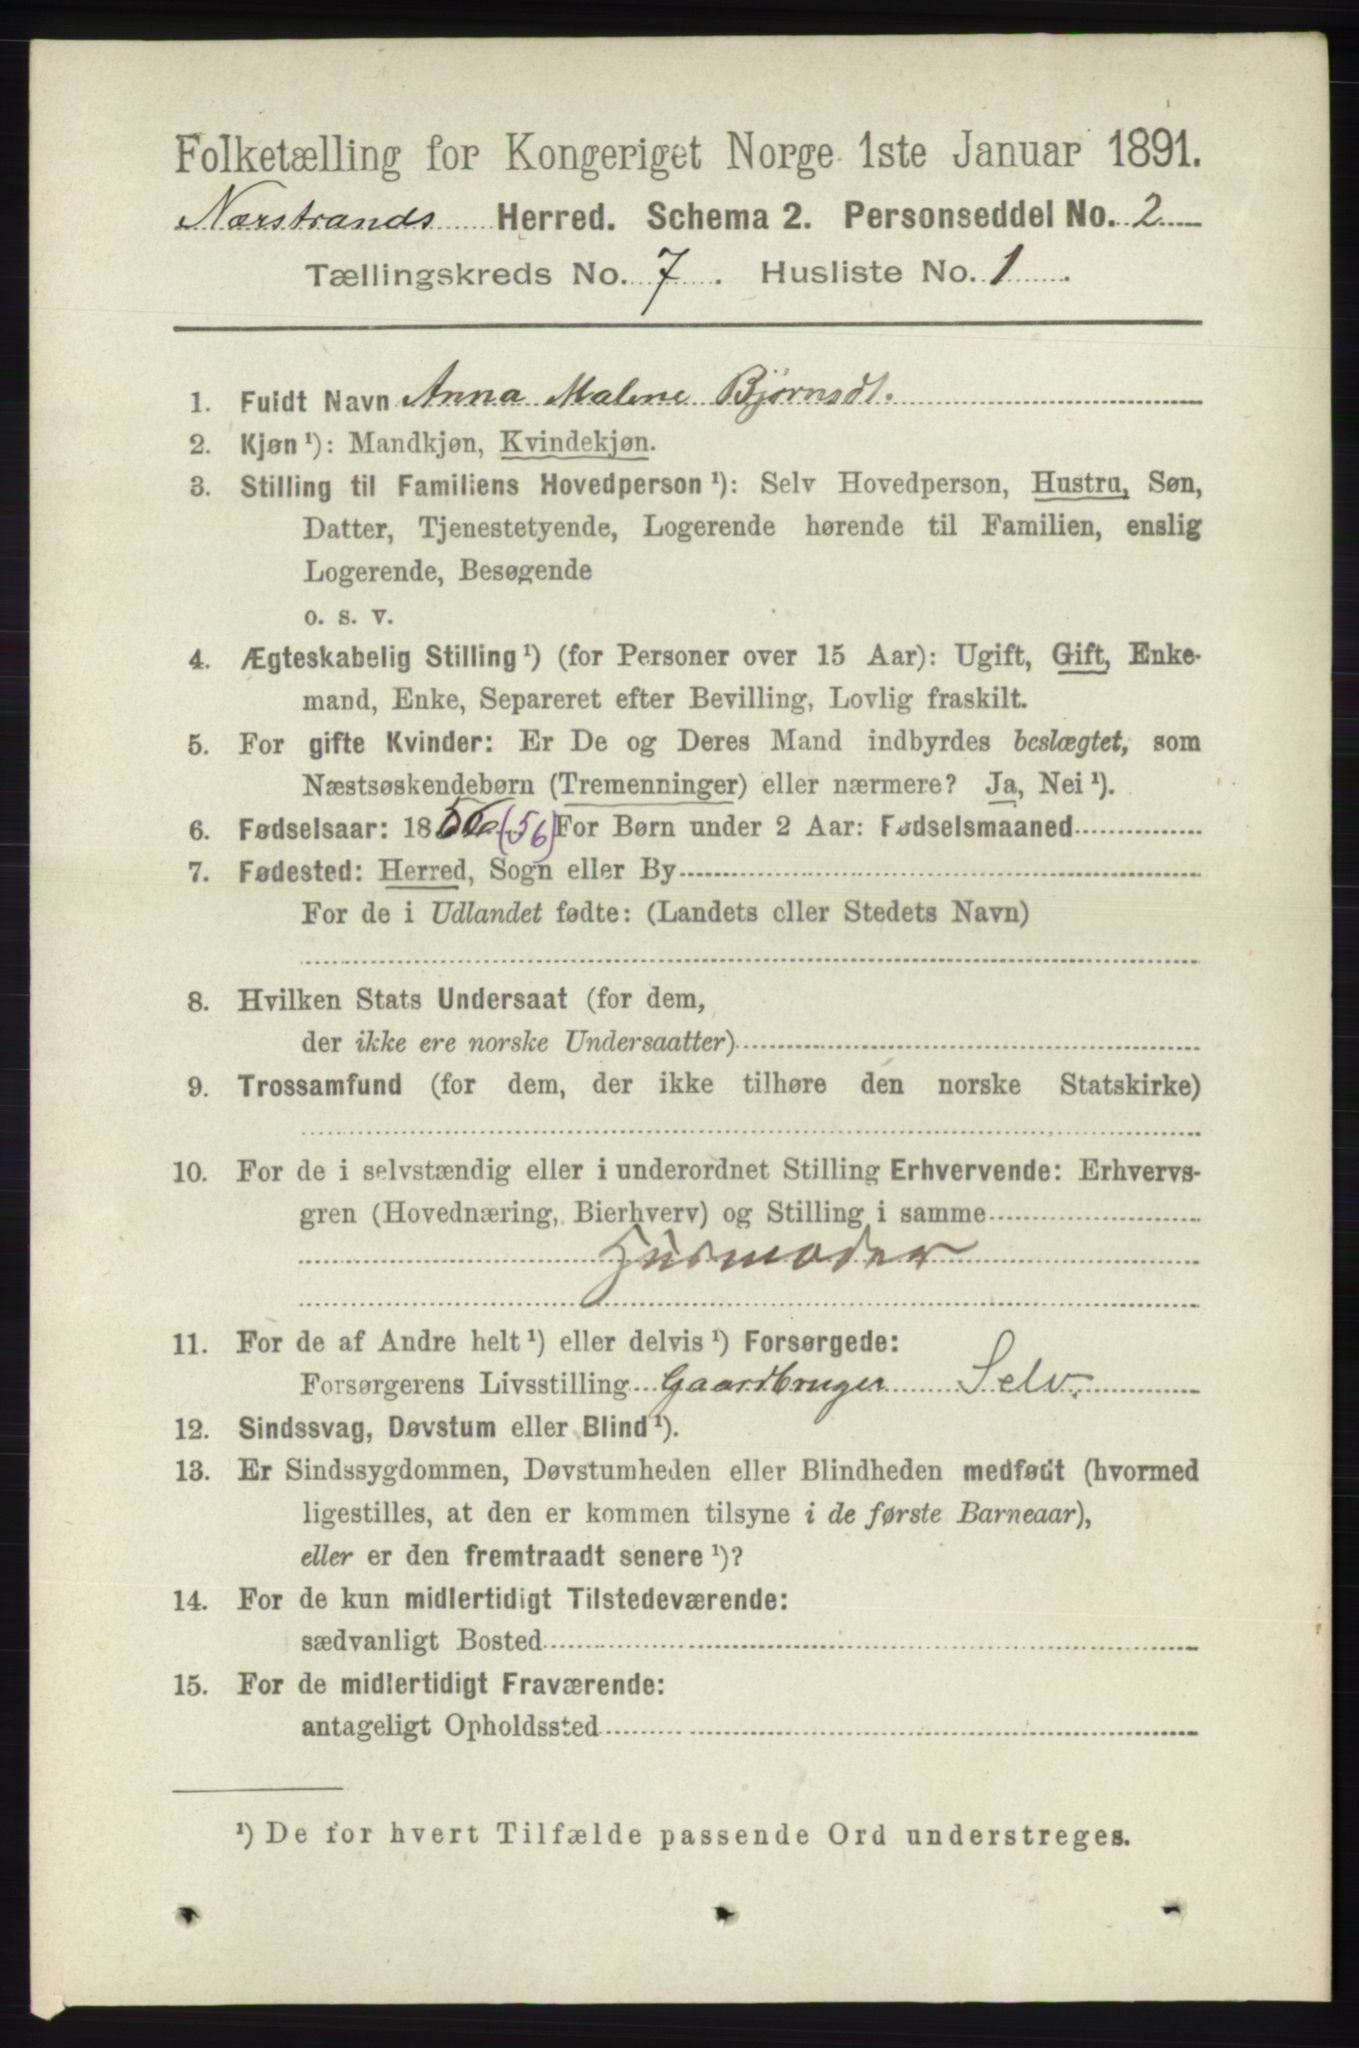 Folketælling for Kongeriget Norge 1ste Januar 1891.
Nærstrands Herred. Schema 2. Personseddel No. 2
Tællingskreds No. 7. Husliste No. 1.
1. Fuldt Navn Anna Malene Bjørnsdt.
2. Kjøn ¹): Mandkjøn, Kvindekjøn.
3. Stilling til Familiens Hovedperson ¹): Selv Hovedperson, Hustru, Søn,
Datter, Tjenestetyende, Logerende hørende til Familien, enslig
Logerende, Besøgende
o. s. v.
4. Ægteskabelig Stilling ¹) (for Personer over 15 Aar): Ugift, Gift, Enke-
mand, Enke, Separeret efter Bevilling, Lovlig fraskilt.
5. For gifte Kvinder: Er De og Deres Mand indbyrdes beslægtet, som
Næstsøskendebørn (Tremenninger) eller nærmere? Ja, Nei ¹).
6. Fødselsaar: 1856 (56) For Børn under 2 Aar: Fødselsmaaned
7. Fødested: Herred, Sogn eller By
For de i Udlandet fødte: (Landets eller Stedets Navn)
8. Hvilken Stats Undersaat (for dem,
der ikke ere norske Undersaatter)
9. Trossamfund (for dem, der ikke tilhøre den norske Statskirke)
10. For de i selvstændig eller i underordnet Stilling Erhvervende: Erhvervs-
gren (Hovednæring, Bierhverv) og Stilling i samme
Husmoder
11. For de af Andre helt ¹) eller delvis ¹) Forsørgede:
Forsørgerens Livsstilling Gaardbruger Selv.
12. Sindssvag, Døvstum eller Blind ¹).
13. Er Sindssygdommen, Døvstumheden eller Blindheden medfødt (hvormed
ligestilles, at den er kommen tilsyne i de første Barneaar),
eller er den fremtraadt senere ¹)?
14. For de kun midlertidigt Tilstedeværende:
sædvanligt Bosted
15. For de midlertidigt Fraværende:
antageligt Opholdssted
¹) De for hvert Tilfælde passende Ord understreges.